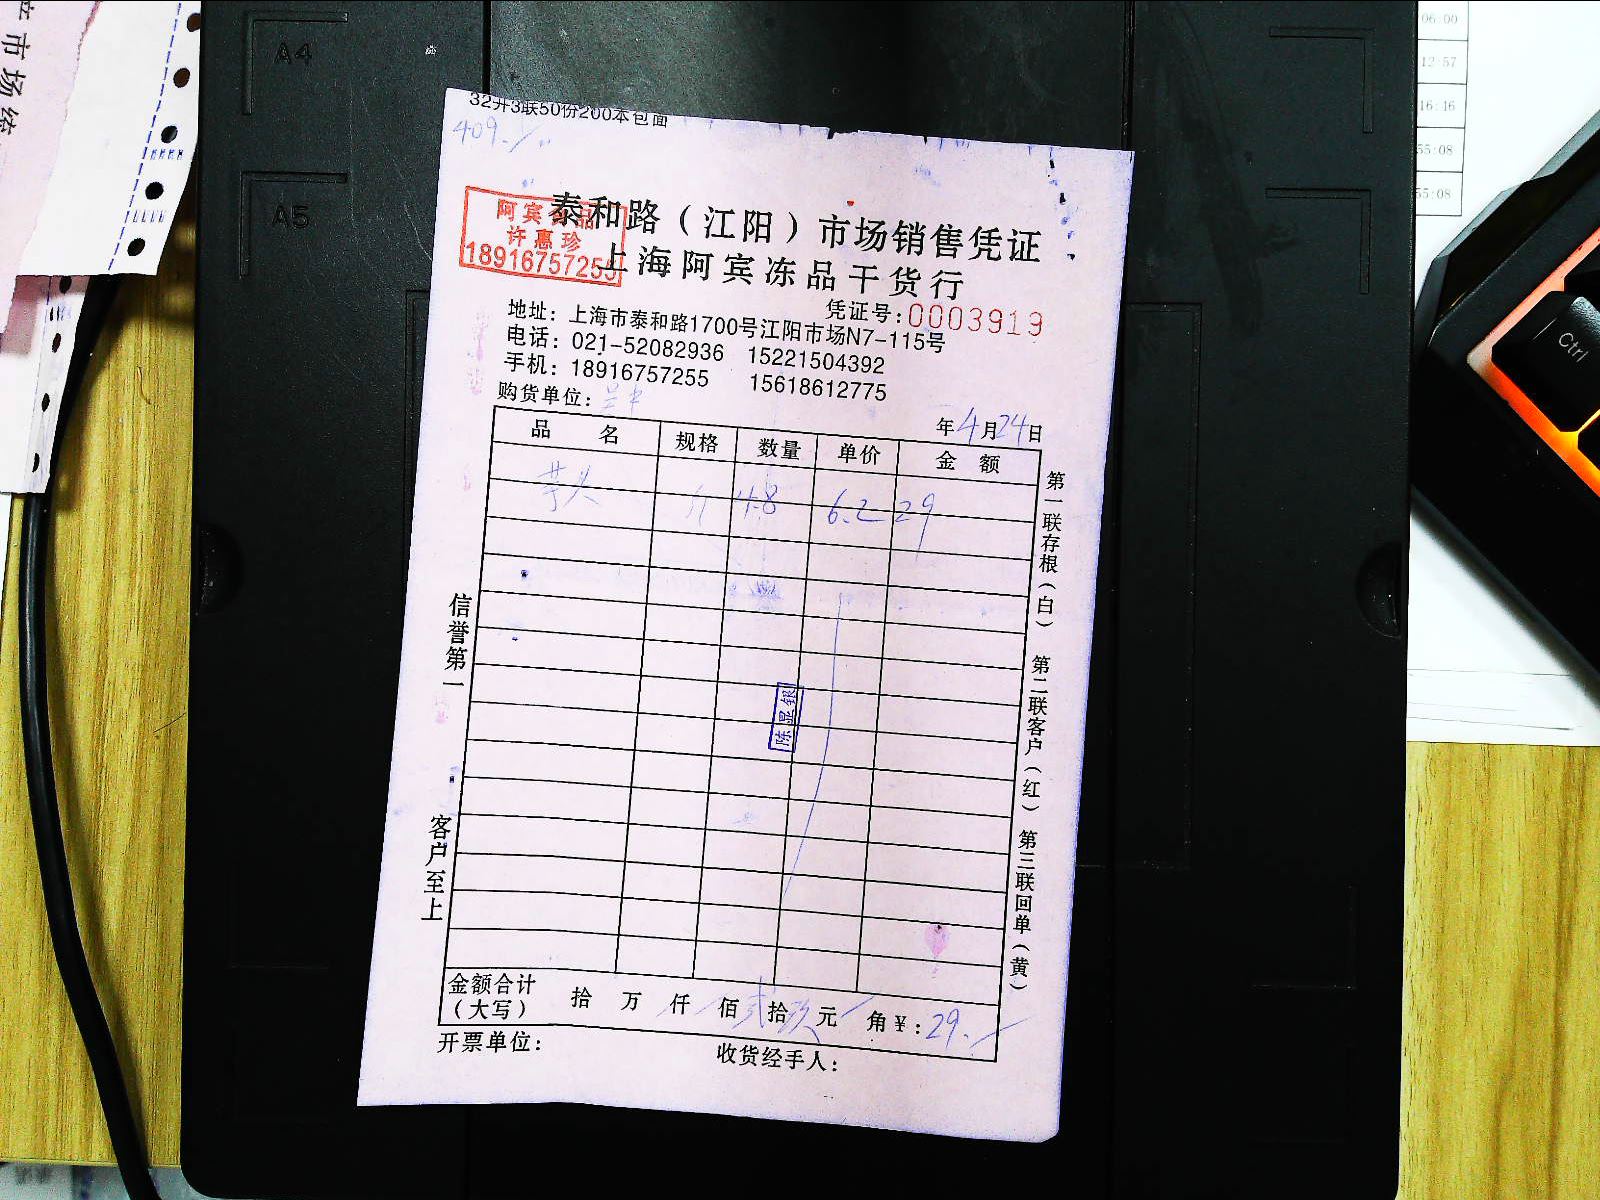 产市场统
A4
A5
06:00
12:57
16:16
55:08
55:08
Ctrl
32开3联50份200本包面
409.-/
阿宾食品
许惠珍
18916757255
泰和路（江阳）市场销售凭证
上海阿宾冻品干货行
凭证号：0003919
地址：上海市泰和路1700号江阳市场N7-115号
电话：021-52082936 15221504392
手机：18916757255 15618612775
购货单位：
年4月24日
品 名 规格 数量 单价 金 额
芋头 斤 4.8 6.2 29
陈显银
信誉第一
客户至上
第一联存根（白） 第二联客户（红） 第三联回单（黄）
金额合计（大写） 拾 万 仟 佰 贰拾玖元 角 ¥：29.-
开票单位： 收货经手人：